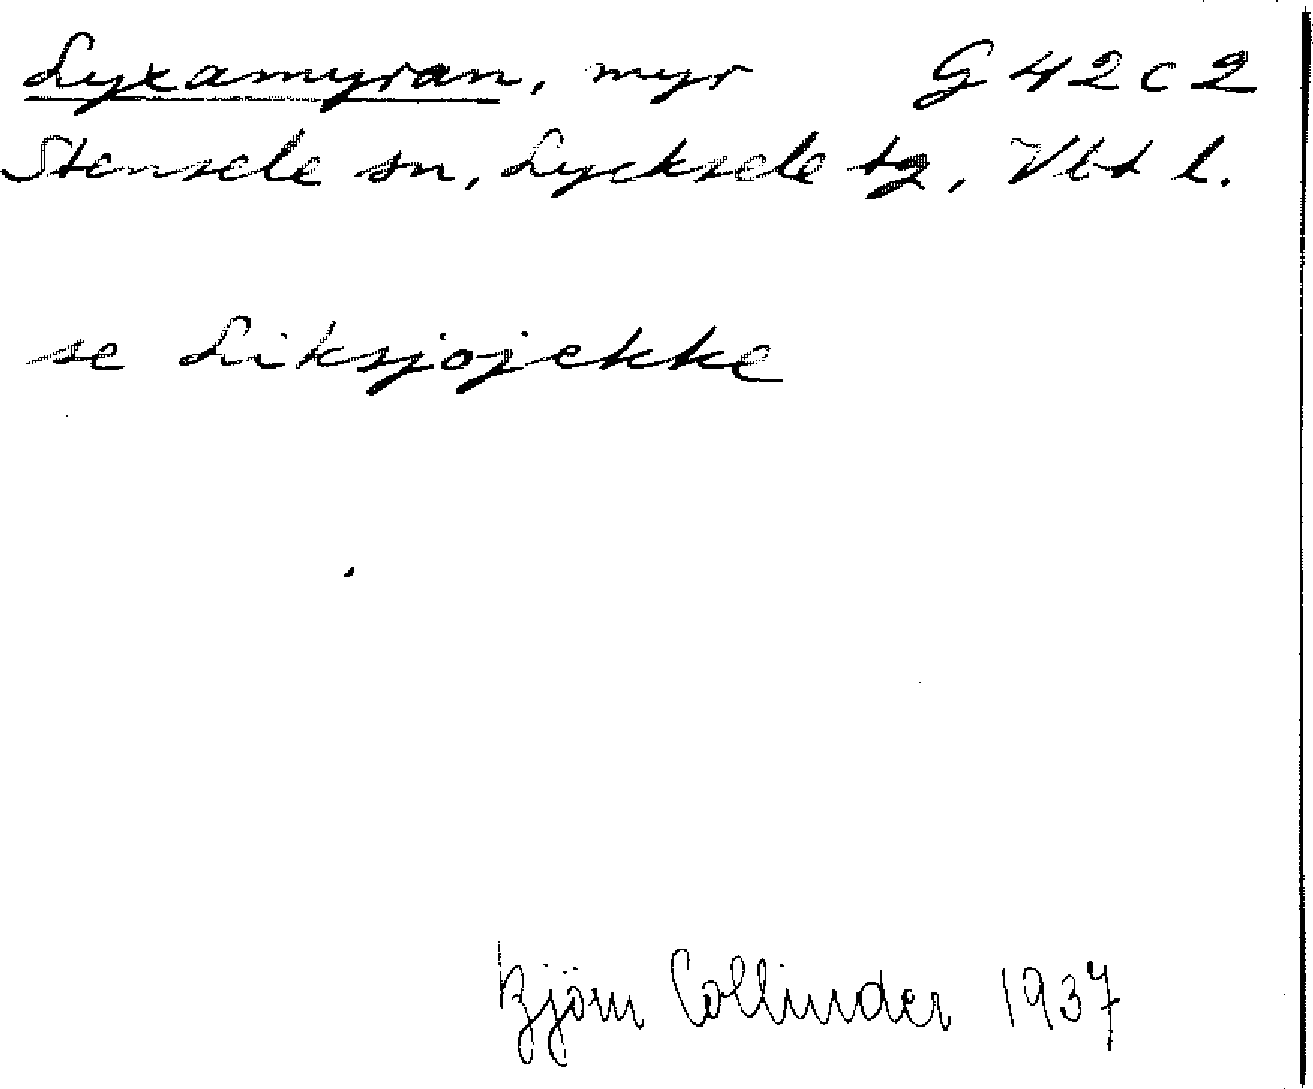 Lyxamyran, myr G 42 c 2
Stensele sn, Lycksele tg, Vbt l.
se Liksjojekke
Björn Collinder 1937